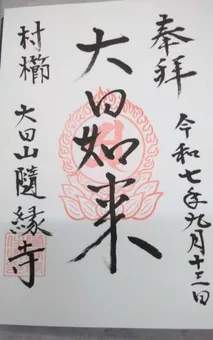 奉拝
令和七年九月十三日
大日如来
村櫛
大田山隨縁寺